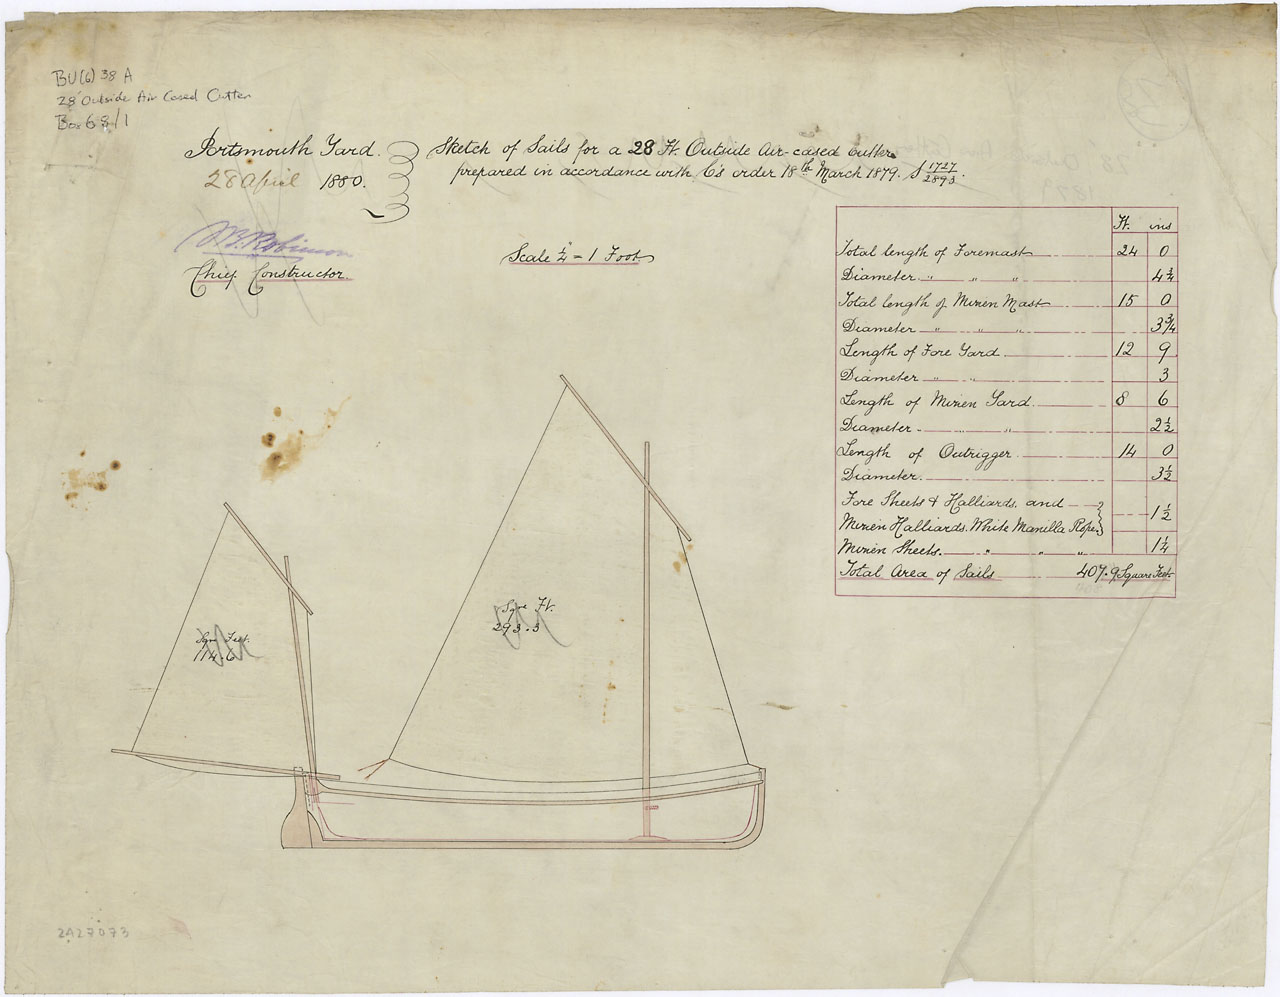 BU(6) 38 A
28' Outside Air Cased Cutter
Box 68/1
Portsmouth Yard.
28 April 1880.
Sketch of Sails for a 28 Ft. Outside Air-cased Cutter
prepared in accordance with C's order 18th March 1879. S 1727/2893.
J.B. Robinson
Chief Constructor.
Scale ¼" = 1 Foot
Ft. ins
Total length of Foremast 24 0
Diameter " " " 4¾
Total length of Mizen Mast 15 0
Diameter " " " 3¾
Length of Fore Yard 12 9
Diameter " " 3
Length of Mizen Yard 8 6
Diameter " 2½
Length of Outrigger 14 0
Diameter. 3½
Fore Sheets & Halliards, and
Mizen Halliards. White Manilla Rope } 1½
Mizen Sheets. " " " 1¼
Total Area of Sails 407.9 Square Feet
Sqre Ft.
293.3
Sqre Feet.
114.6
2A27073